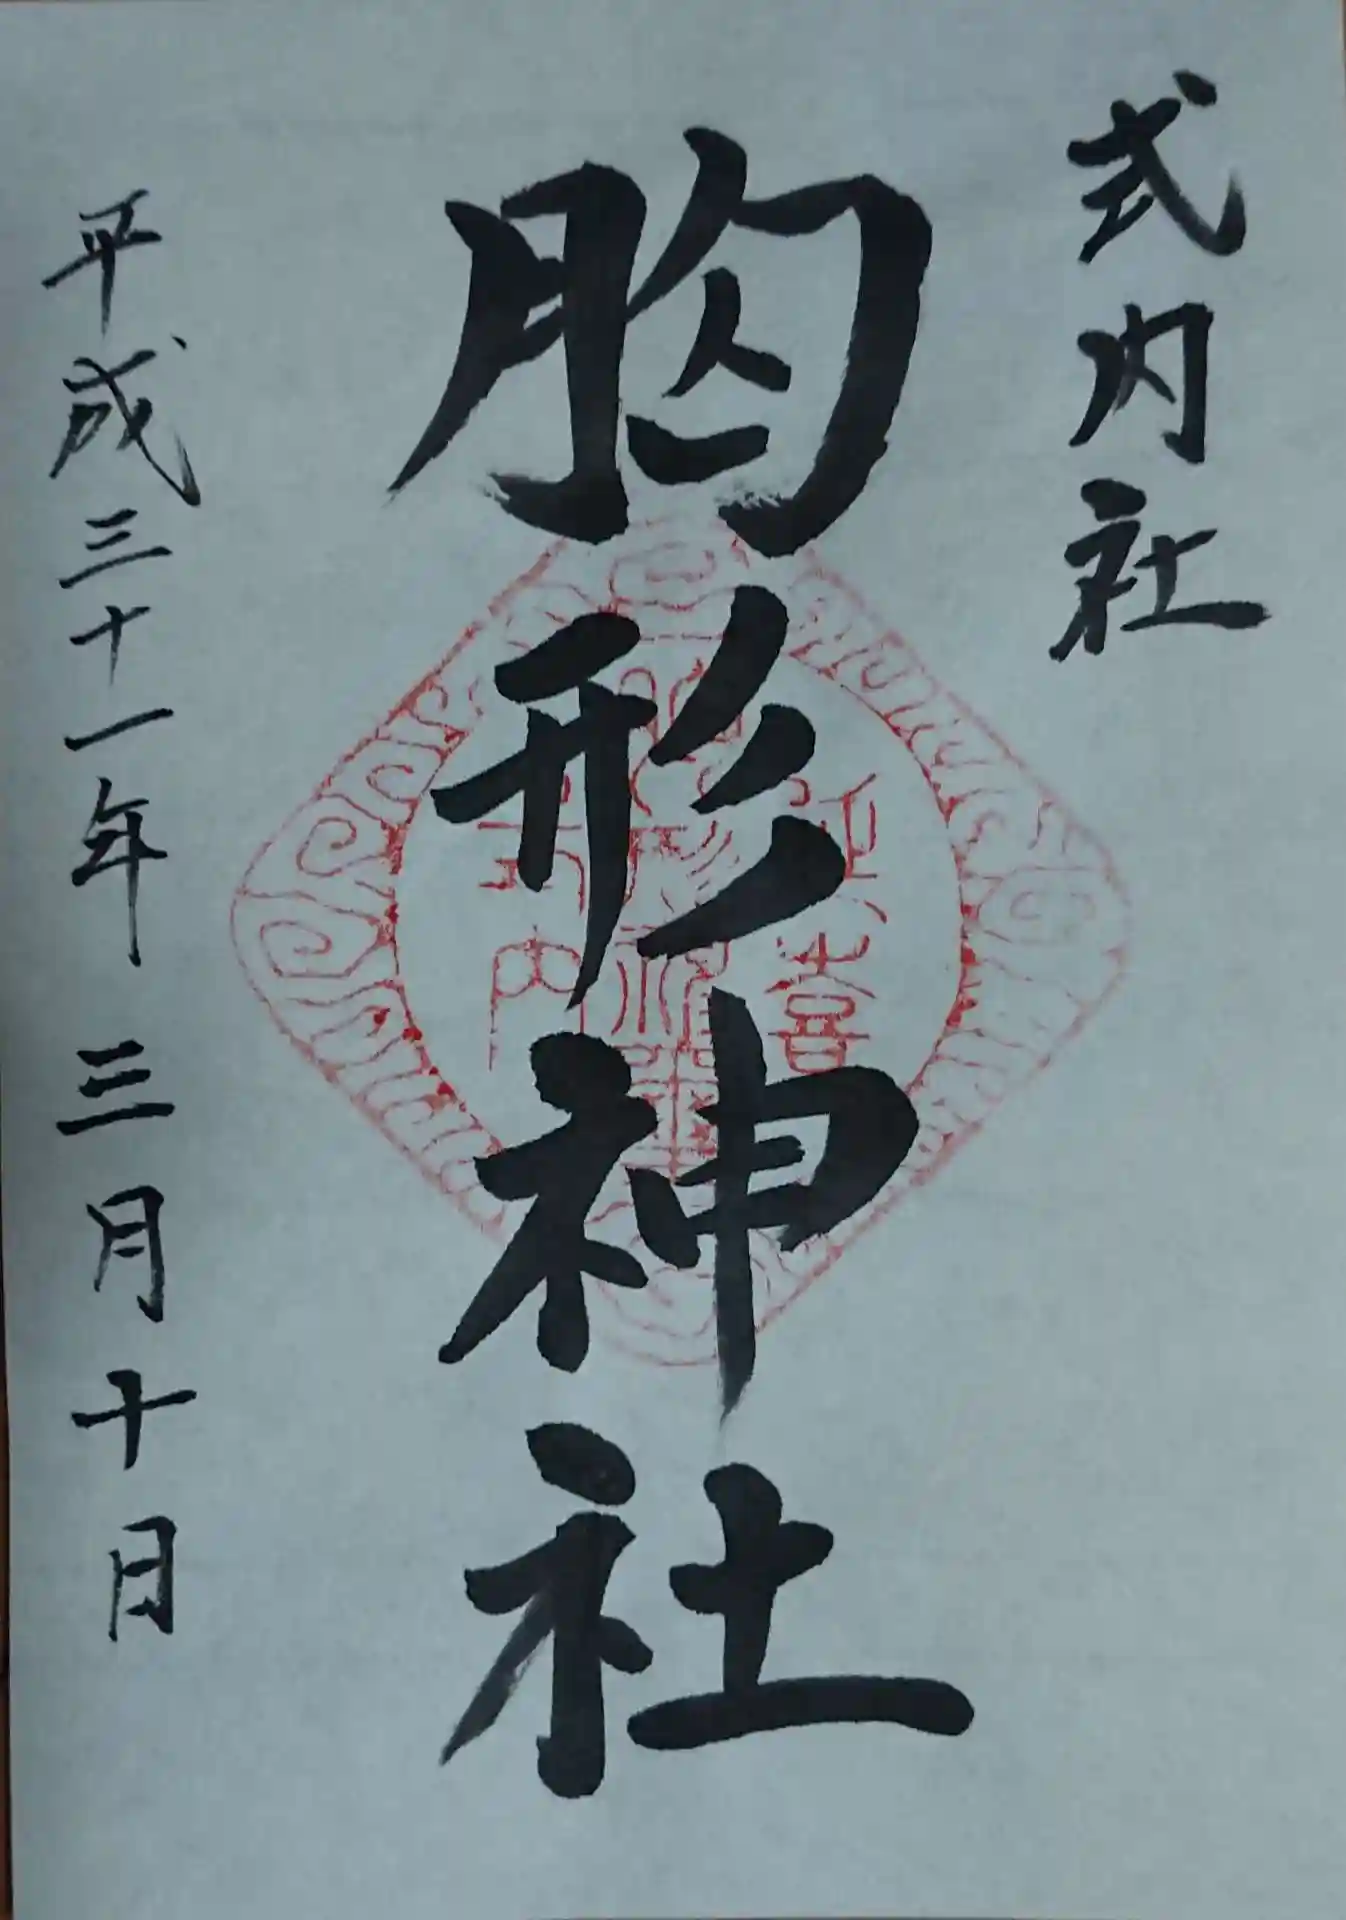 式内社
胸形神社
平成三十一年三月十日
延喜
式内